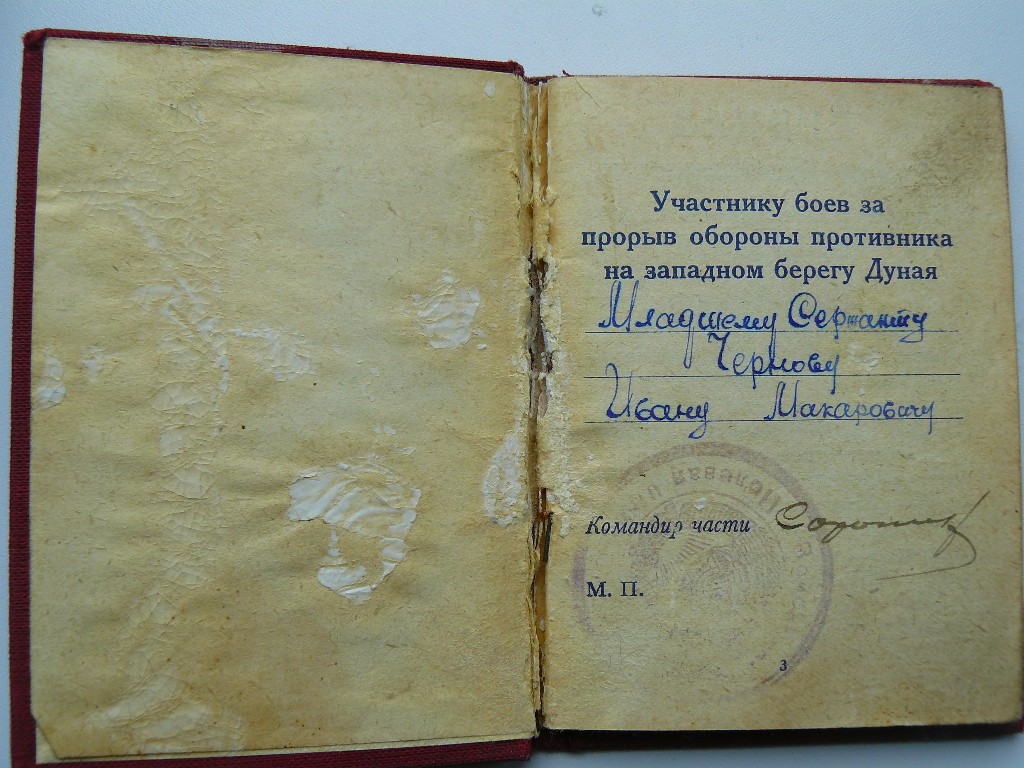 Участнику боев за
прорыв обороны противника
на западном берегу Дуная
Младшему Сержанту
Чернову
Ивану Макаровичу
Командир части
М. П.
3